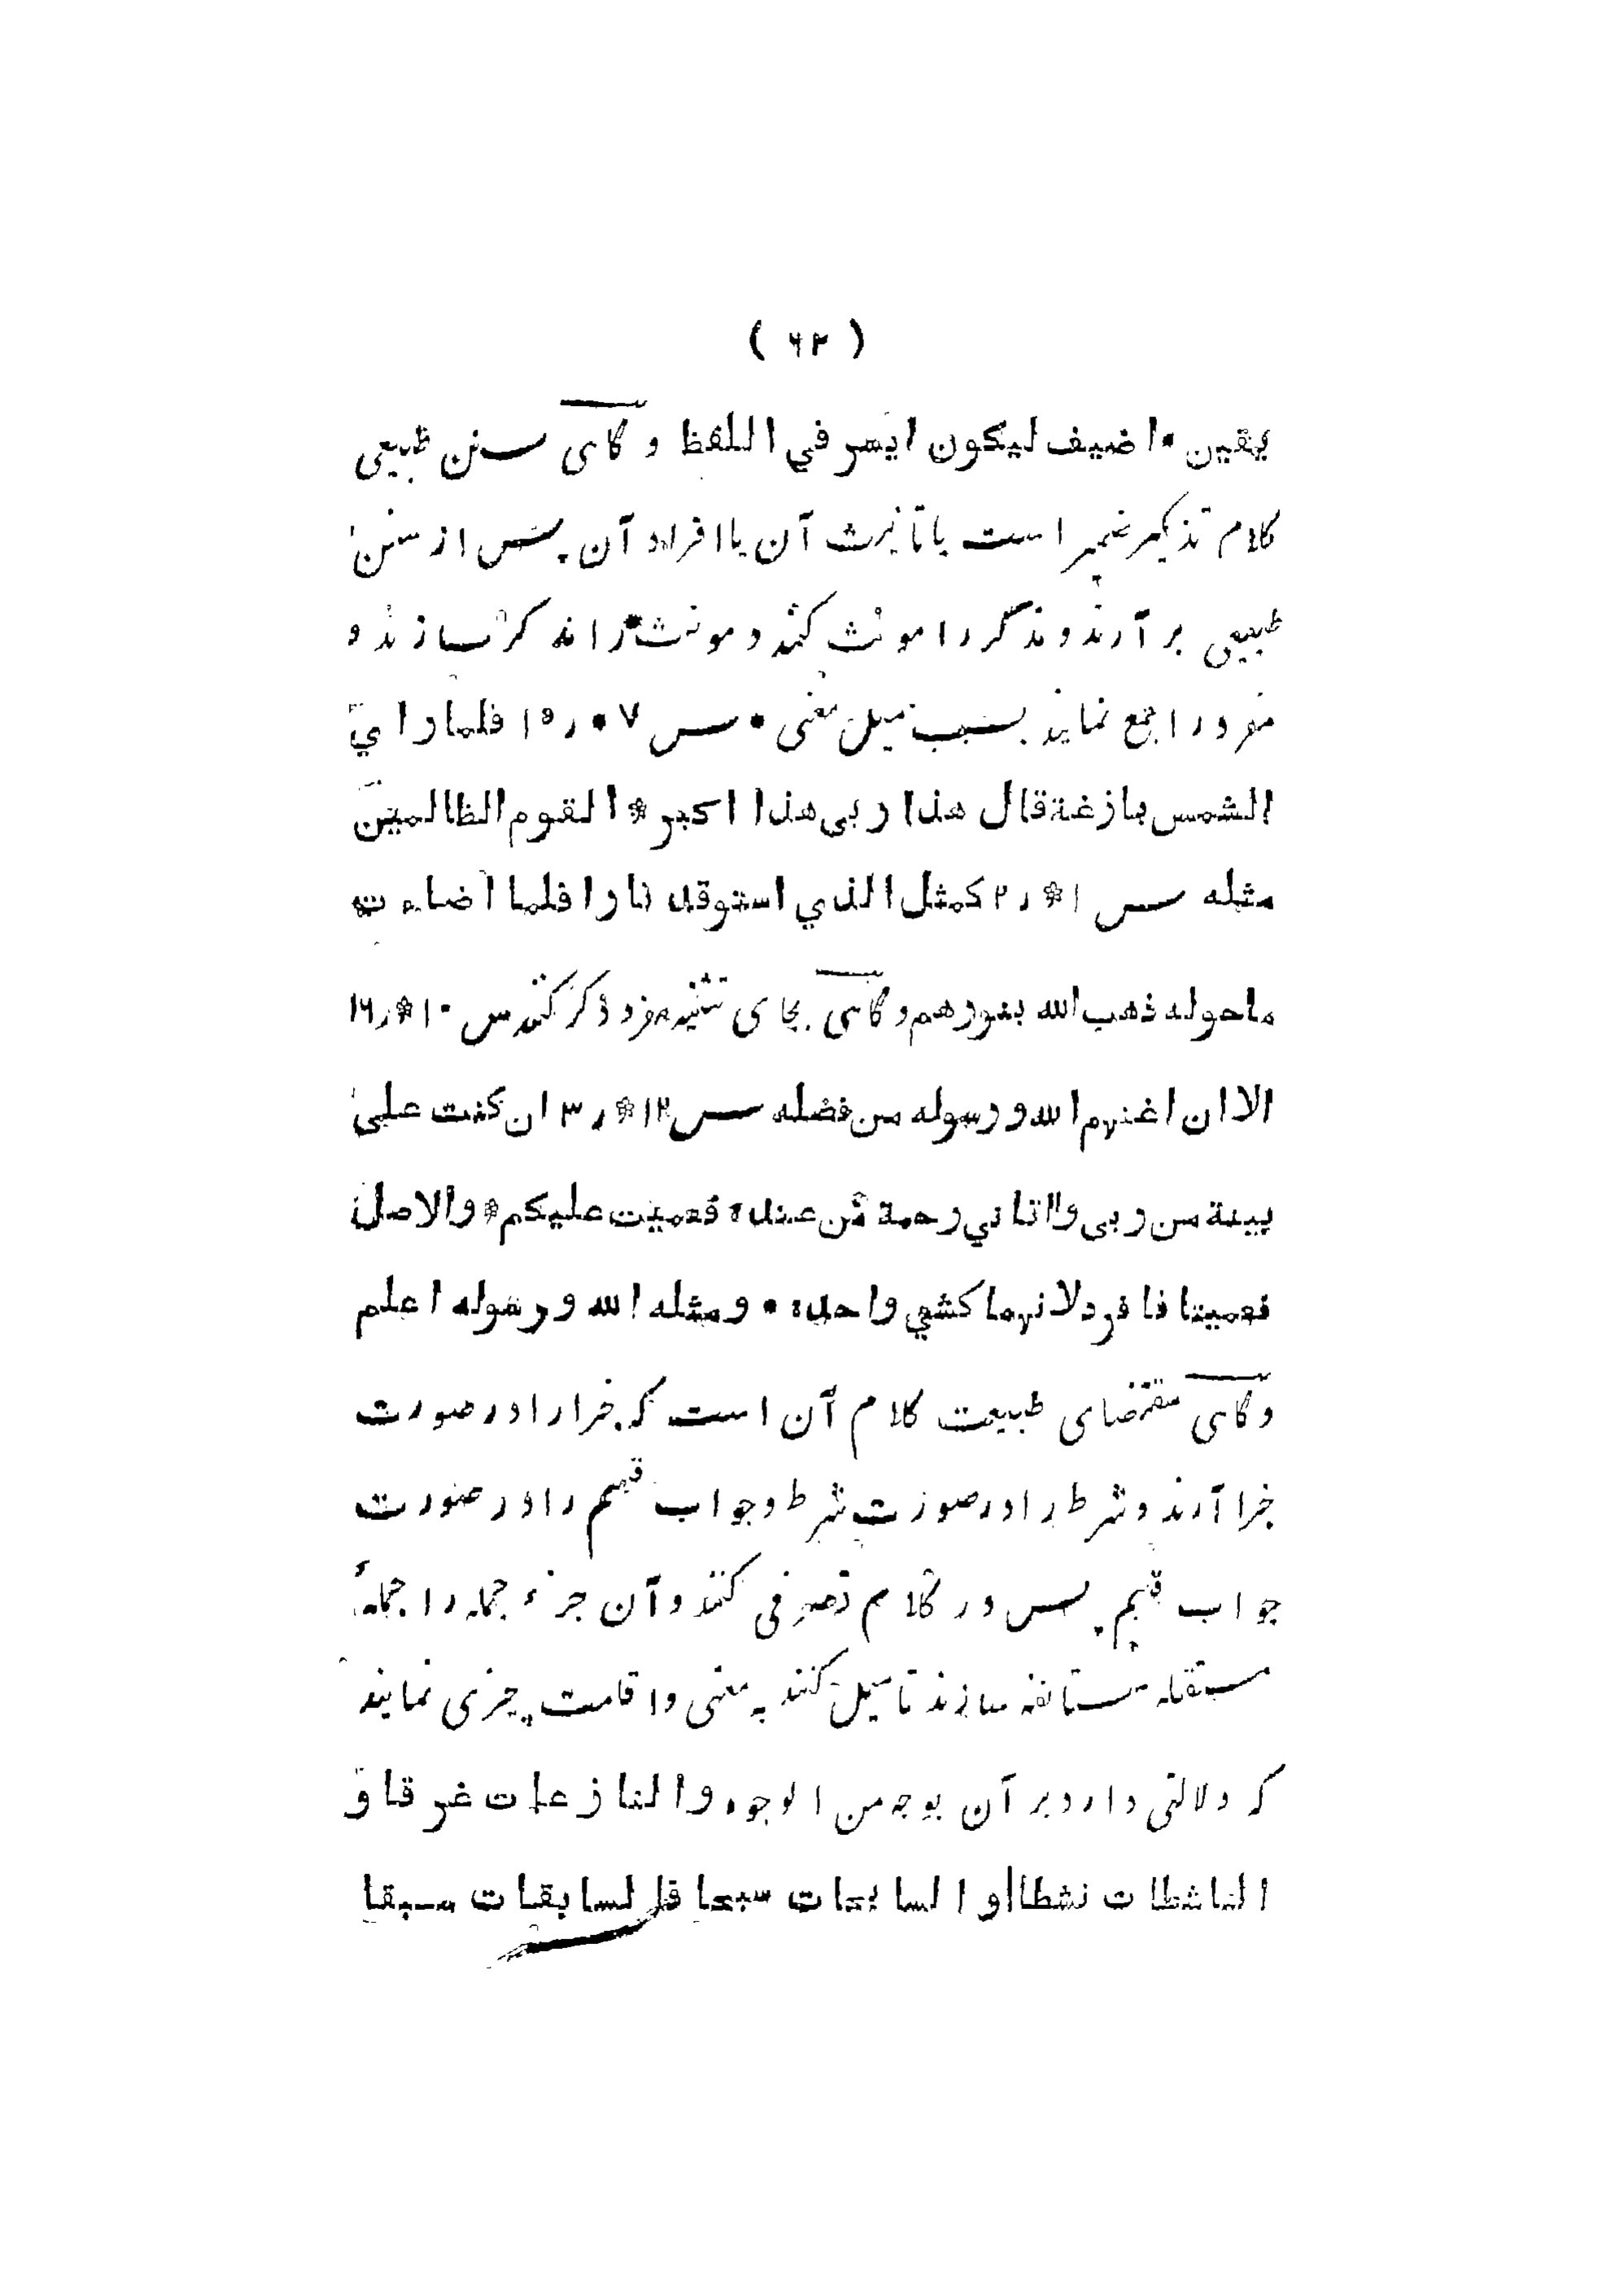 ( ٦٢ )
يقين * اضيف ليكون ايسر في اللفظ و گاهی سنن طبیعی
کلام تذکیر ضمیر است یا تانیث آن یا افراد آن پس از سنن
طبیعی بر آرند و مذکر را مونث کنند و مونث را مذکر سازند و
مفرد را جمع نمایند بسبب میل معنی * س ٧ * ر ١٥ فلما را اي
الشمس بازغة قال هذا ربى هذا اكبر * القوم الظالمين
مثله س ١ * ر ٢ كمثل الذي استوقد نارا فلما اضاءت
ماحوله ذهب الله بنورهم و گاهی بجای تثنیه مفرد ذکر کنند س ١٠ * ر ١٦
الا ان اغنهم الله و رسوله من فضله س ١٢ * ر ٣ ان كنت على
بينة من ربى و اتاني رحمة من عنده فعميت عليكم * والاصل
فعميتا فا فرد لانهما كشي واحده * و مثله الله و رسوله اعلم
و گاهی مقتضای طبیعت کلام آن است که جزا را در صورت
جزا آرند و شرط را در صورت شرط و جواب قسم را در صورت
جواب قسم پس در کلام تصرفی کنند و آن جزء جمله را جملهٔ
مستقله مستانفه سازند تا میل کنند به معنی و اقامت چیزی نمایند
که دلالتی دارد بر آن بوجه من الوجوه والنازعات غرقا و
الناشطات نشطا و السابحات سبحا فالسابقات سبقا